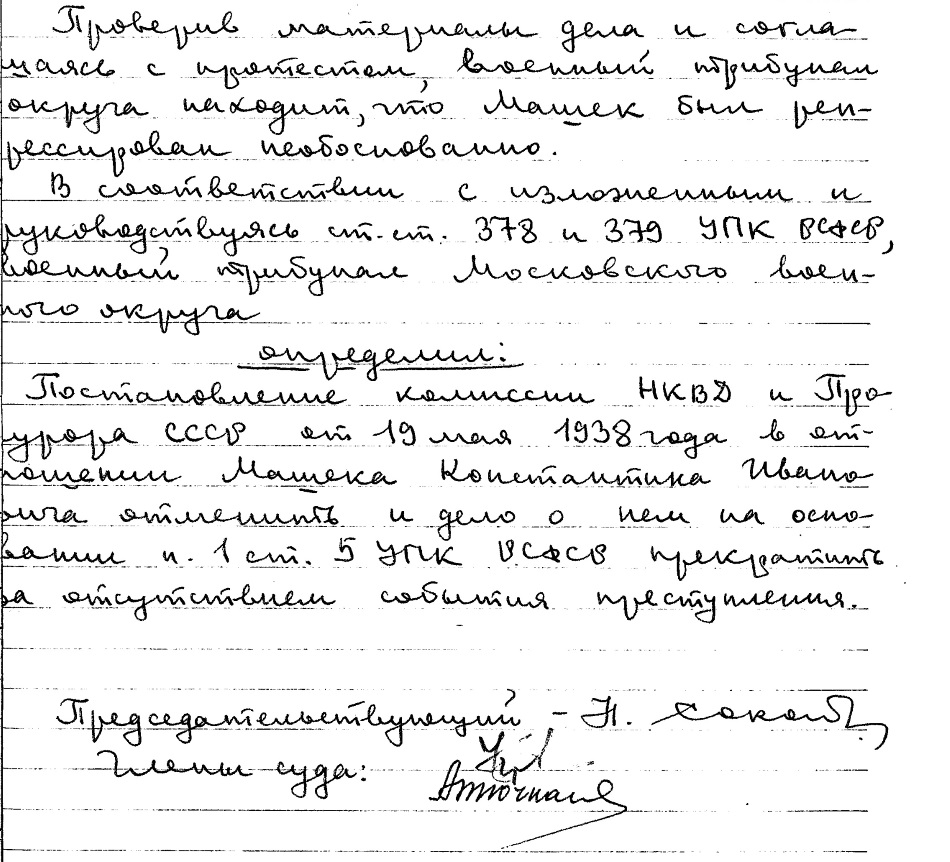 Проверив материалы дела и согла-
шаясь с протестом, военный трибунал
округа находит, что Машек был реп-
рессирован необоснованно.
В соответствии с изложенным и
руководствуясь ст.ст. 378 и 379 УПК РСФСР,
военный трибунал Московского воен-
ного округа
определил:
Постановление комиссии НКВД и Про-
курора СССР от 19 мая 1938 года в от-
ношении Машека Константина Ивано-
вича отменить и дело о нем на осно-
вании п. 1 ст. 5 УПК РСФСР прекратить
за отсутствием события преступления.
Председательствующий - Н.
Члены суда: